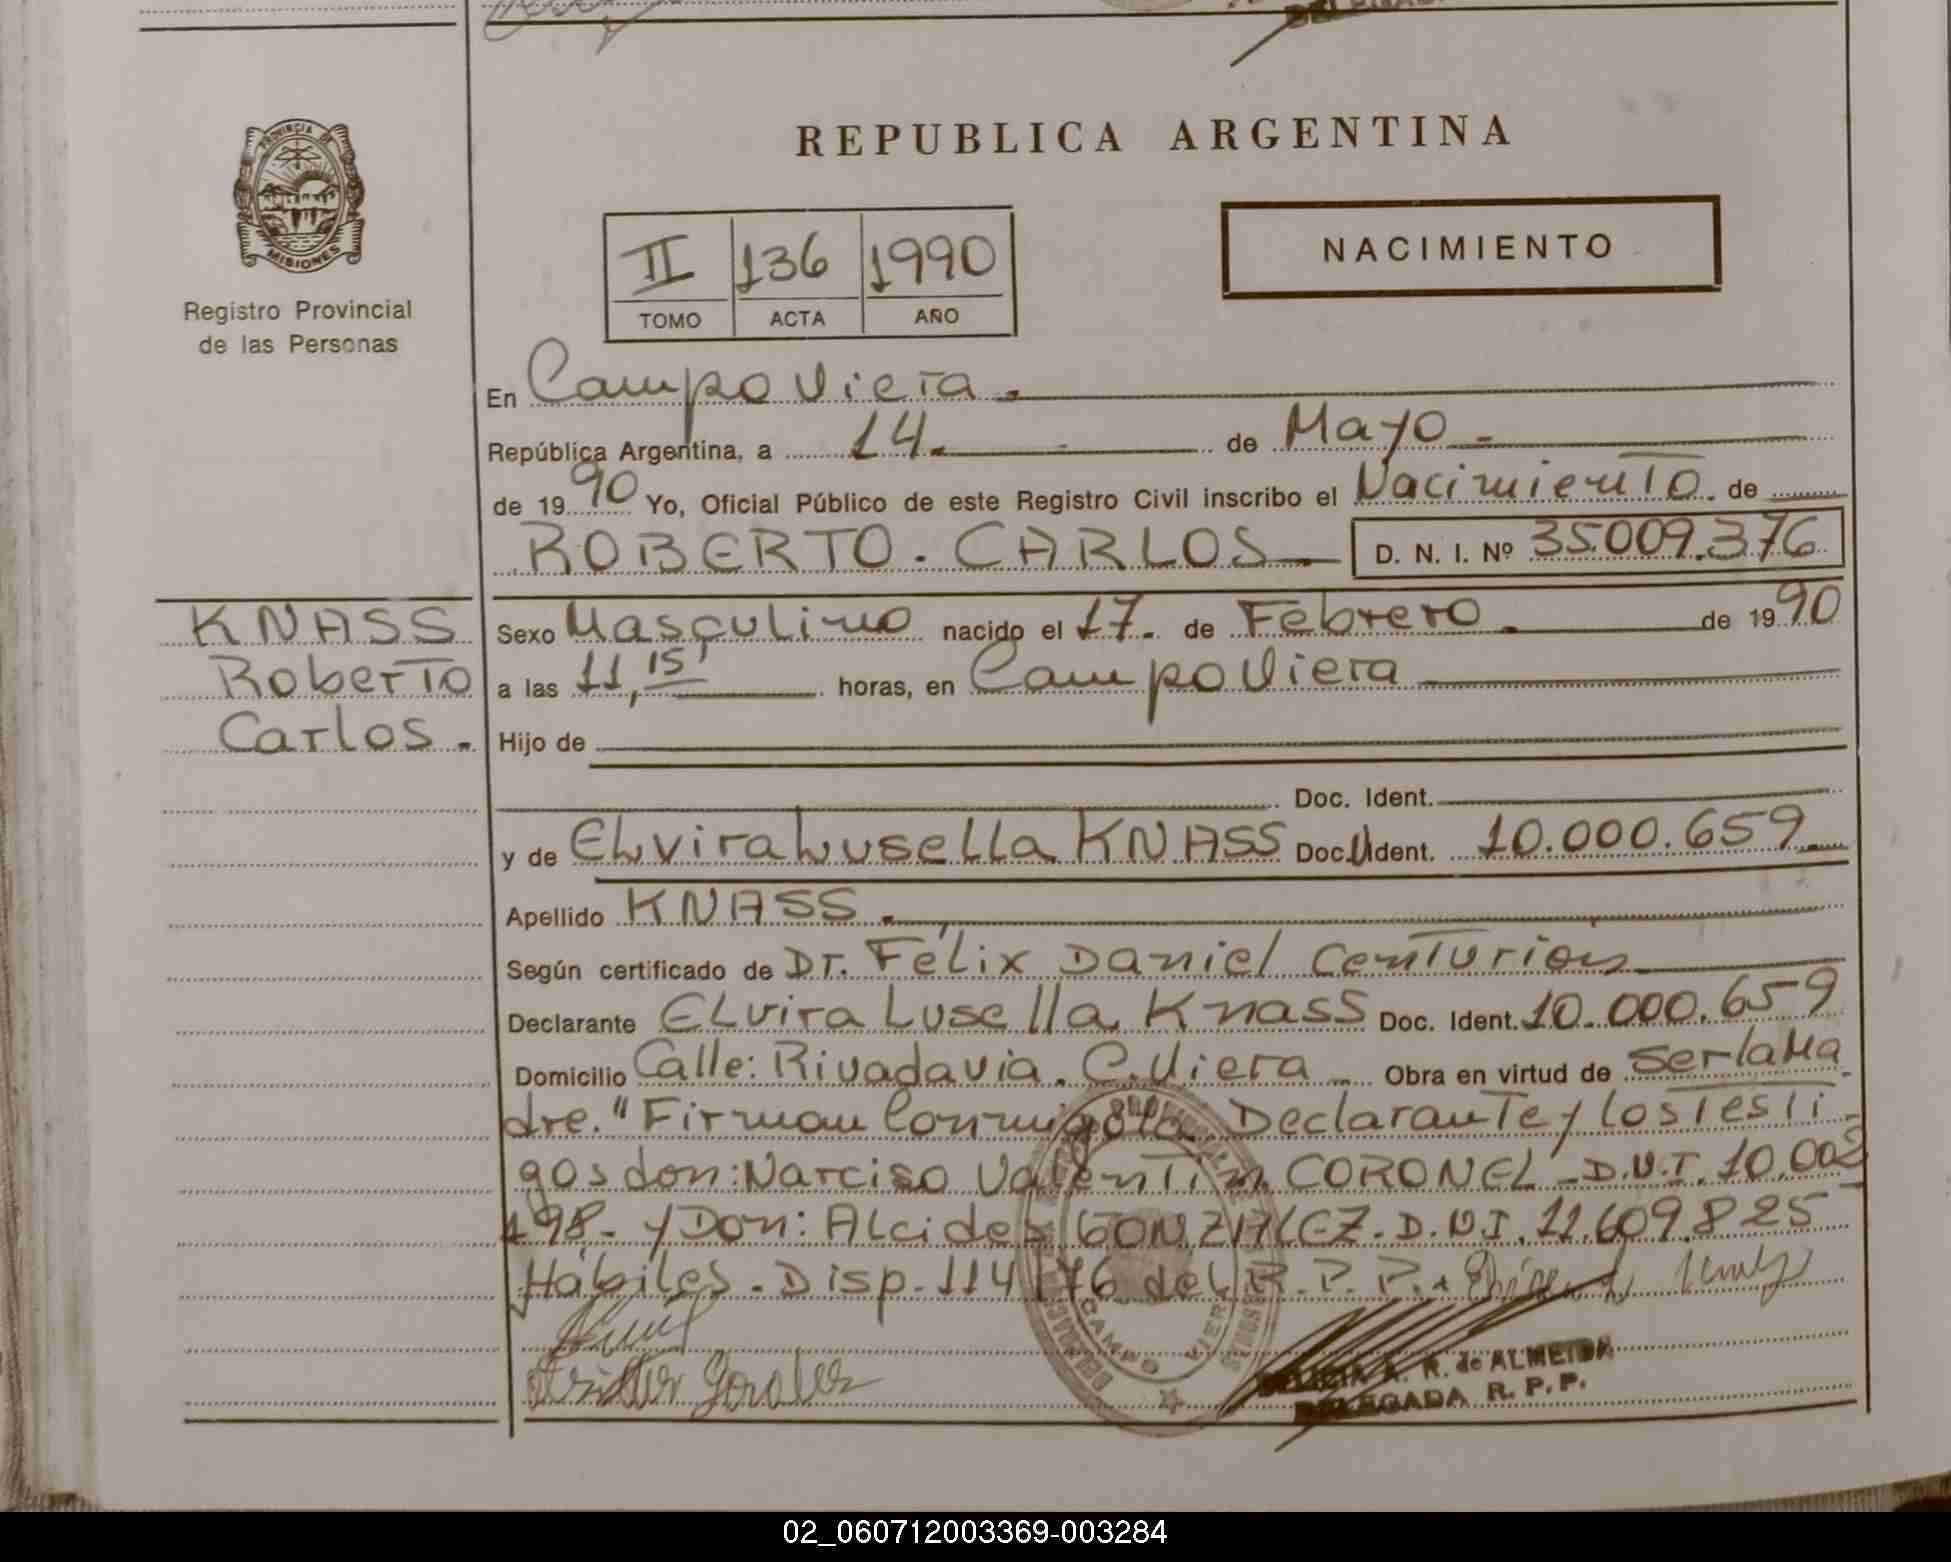 REPUBLICA ARGENTINA
PROVINCIA DE
MISIONES
Registro Provincial
de las Personas
II 136 1990
TOMO ACTA AÑO
NACIMIENTO
En Campo Viera.
República Argentina, a 14. de Mayo.
de 1990 Yo, Oficial Público de este Registro Civil inscribo el Nacimiento. de
ROBERTO. CARLOS. D. N. I. Nº 35.009.376
KNASS
Roberto
Carlos.
Sexo Masculino nacido el 17. de Febrero. de 1990
a las 11,15' horas, en Campo Viera
Hijo de
Doc. Ident.
y de Elvira Lusella KNASS Doc. Ident. 10.000.659
Apellido KNASS.
Según certificado de Dr. Félix Daniel Centurión
Declarante Elvira Lusella Knass Doc. Ident. 10.000.659
Domicilio Calle: Rivadavia. C. Viera Obra en virtud de ser la Ma
dre." Firman Conmigo la Declarante y los Testi
gos don: Narciso Valentin CORONEL - D.N.I. 10.002
198.- y Don: Alcides GONZALEZ. D.N.I. 11.609.825
Hábiles. Disp. 114/76 del R.P.P.
CAMPO VIERA
DELICIA A. R. de ALMEIDA
DELEGADA R. P. P.
02_060712003369-003284